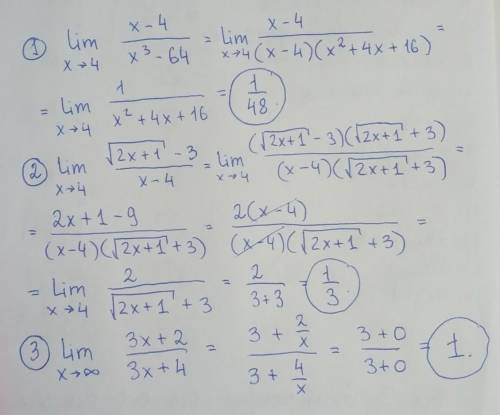 ① lim x→4 (x-4)/(x³-64) = lim x→4 (x-4)/((x-4)(x²+4x+16)) =
= lim x→4 1/(x²+4x+16) = 1/48.
② lim x→4 (√(2x+1) -3)/(x-4) = lim x→4 ((√(2x+1) -3)(√(2x+1) +3))/((x-4)(√(2x+1) +3)) =
= (2x+1-9)/((x-4)(√(2x+1) +3)) = (2(x-4))/((x-4)(√(2x+1) +3)) =
= lim x→4 2/(√(2x+1) +3) = 2/(3+3) = 1/3.
③ lim x→∞ (3x+2)/(3x+4) = (3+2/x)/(3+4/x) = (3+0)/(3+0) = 1.